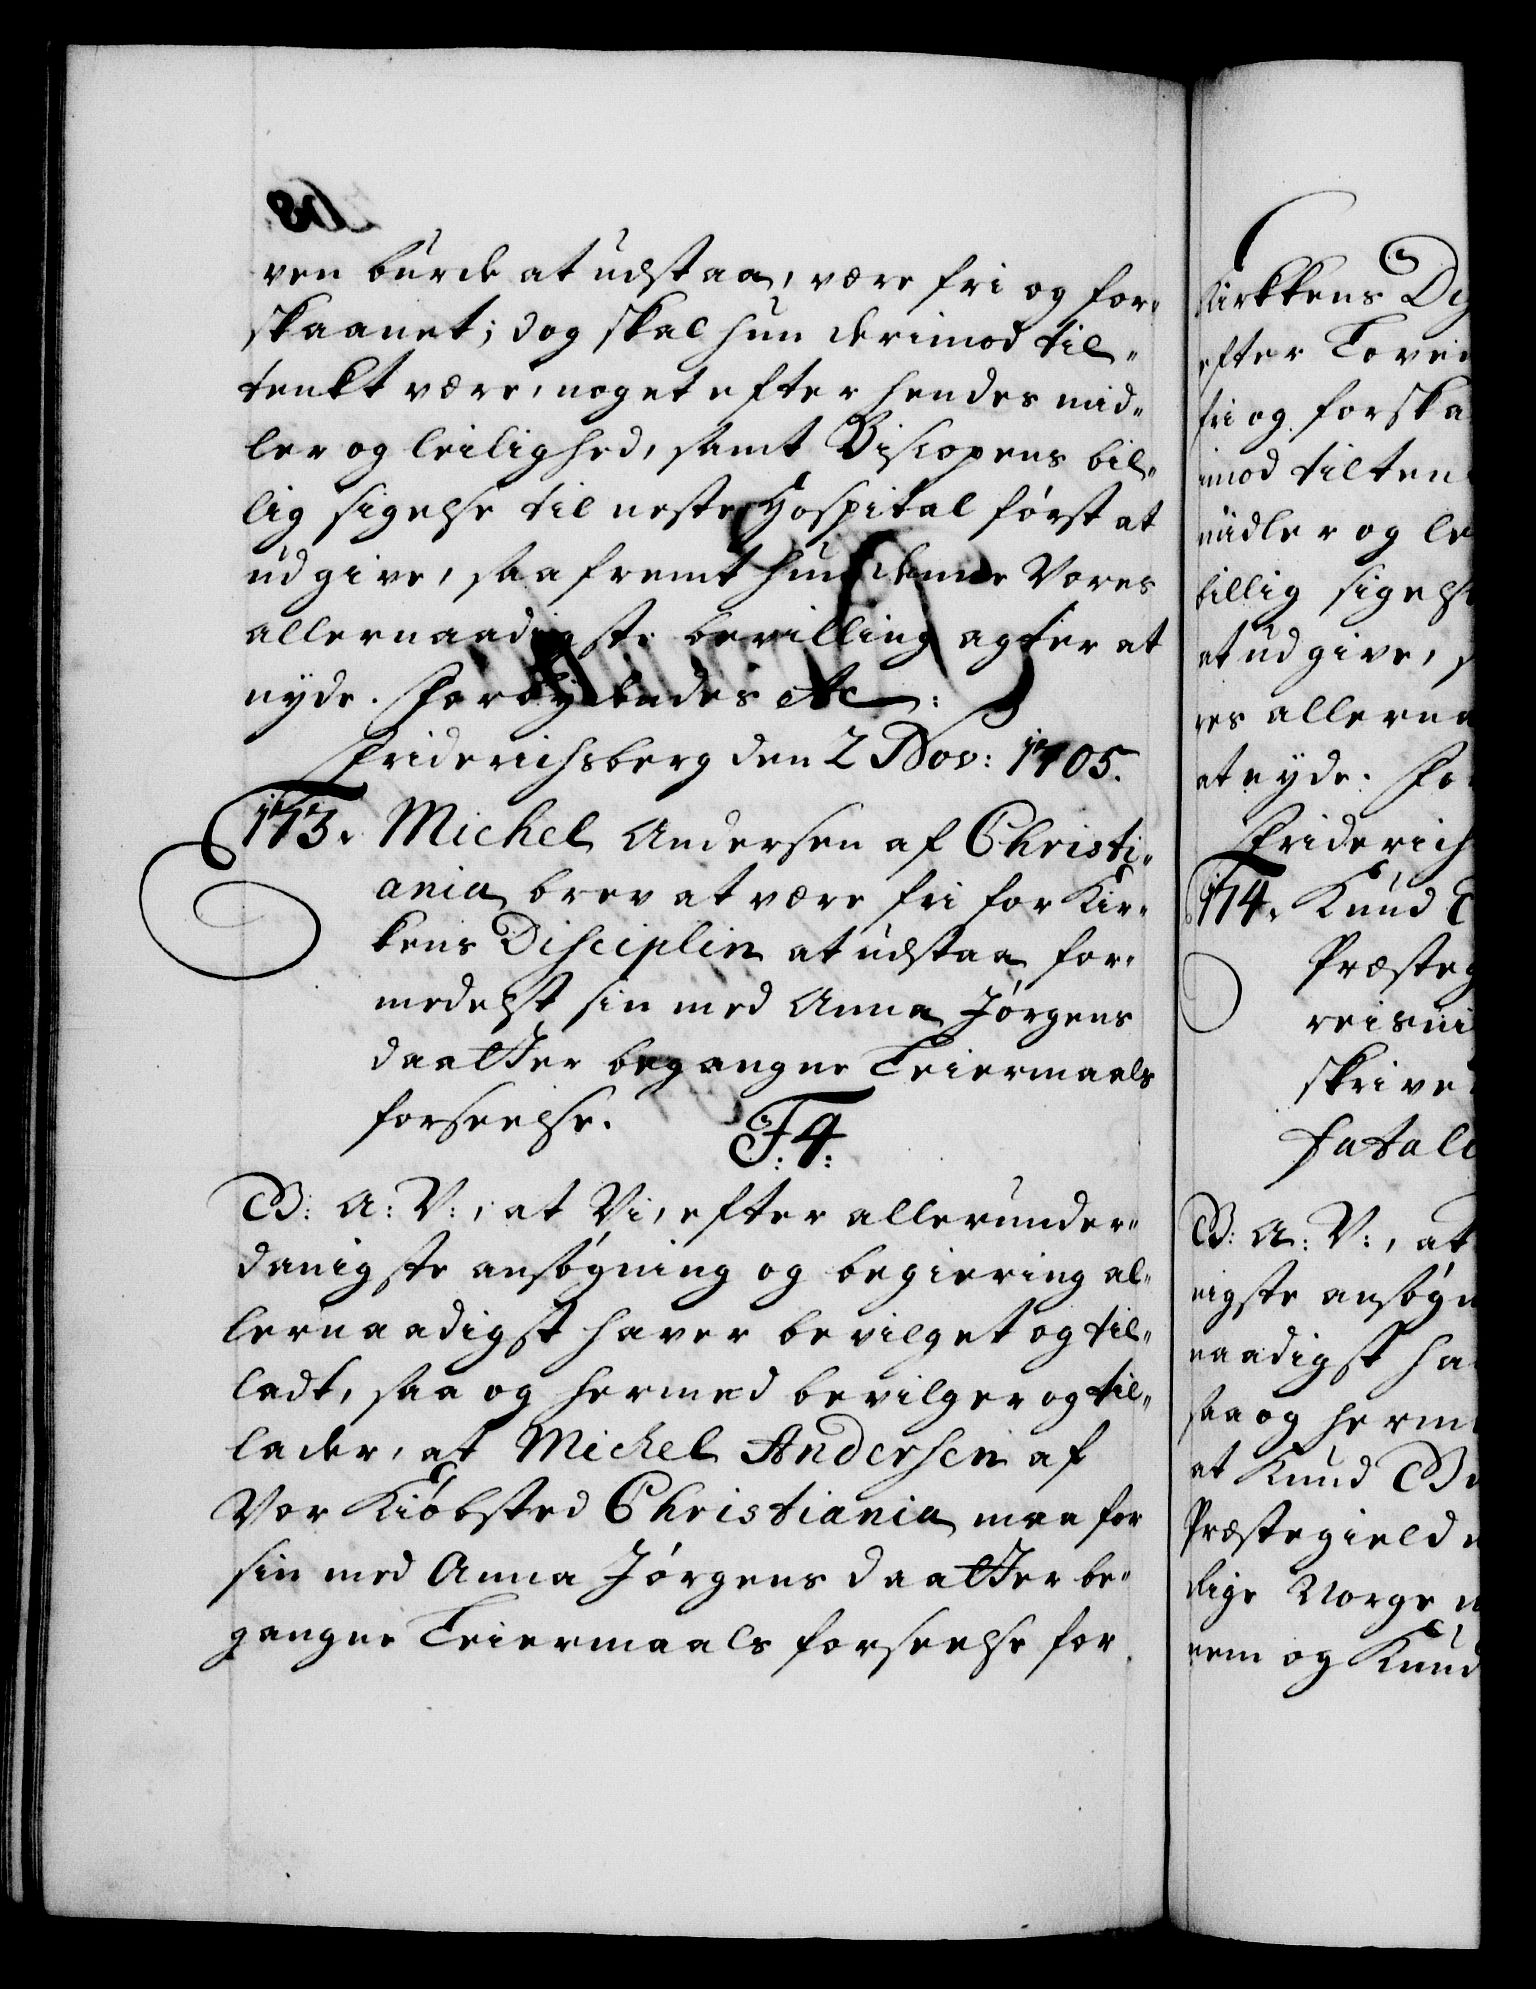 ven burde at udstaa, være fri og for-
skaanet; dog skal hun derimod til-
tenkt være, noget efter hendes mid-
ler og leilighed, samt Biscopens bil-
lig sigelse til neste Hospital først at
udgive, saafremt hun denne Vores
allernaadigste bevilling agter at
nyde. Forbydendes etc:
Friderichsberg den 2 Nov: 1705.
173. Michel Andersen af Christi-
ania brev at være fri for Kir-
kens Disciplin at udstaa for-
medelst sin med Anna Jørgens
daatter begangne Leiermaals
forseelse.
F: 4:
G: A: V:, at Vi, efter allerunder-
danigste ansøgning og begiering al-
lernaadigst haver bevilget og til-
ladt, saa og hermed bevilger og til-
lader, at Michel Andersen af
Vor Kiøbsted Christiania maa for
sin med Anna Jørgens daatter be-
gangne Leiermaals forseelse for
Kirkkens
efter
fri og forska
imod tilten
midler og le
billig sigelse
at udgive, s
res allerna
at nyde. Fo
Friderich
174. Knud
Præsteg
reisni
skrive
fatal
G: A: V:, at
nigste ansøgn
naadigst ha
saa og herm
at Knud
Præstegield
rige Norge
nem og Knud